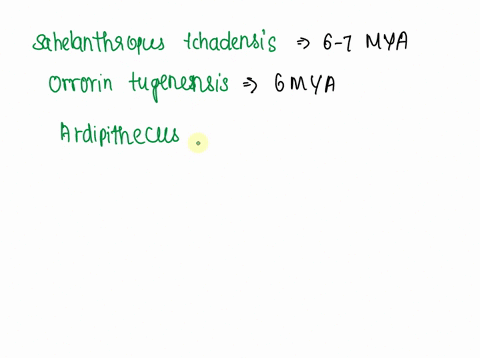 Sahelanthropus tchadensis ⇒ 6-7 MYA
Orrorin tugenensis ⇒ 6 MYA
Ardipithecus